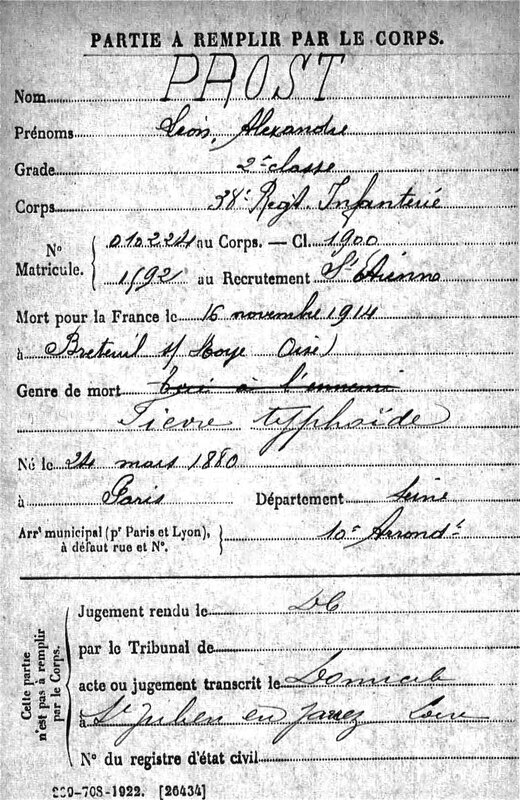 PARTIE À REMPLIR PAR LE CORPS.
Nom PROST
Prénoms Louis, Alexandre
Grade 2e classe
Corps 38e Regt. Infanterie
N° Matricule. { 010224 au Corps. — Cl. 1900
1592 au Recrutement St Etienne
Mort pour la France le 16 novembre 1914
à Breteuil s/ Noye Oise)
Genre de mort Tué à l'ennemi
Fievre typhoïde
Né le 24 mars 1880
à Paris Département Seine
Arrt municipal (pr Paris et Lyon), à défaut rue et N°. } 10e Arrondt
Cette partie n'est pas à remplir par le Corps.
Jugement rendu le
par le Tribunal de
acte ou jugement transcrit le Domicile
à St Julien en Jarrez Loire
N° du registre d'état civil
2 -708-1922. [26434]